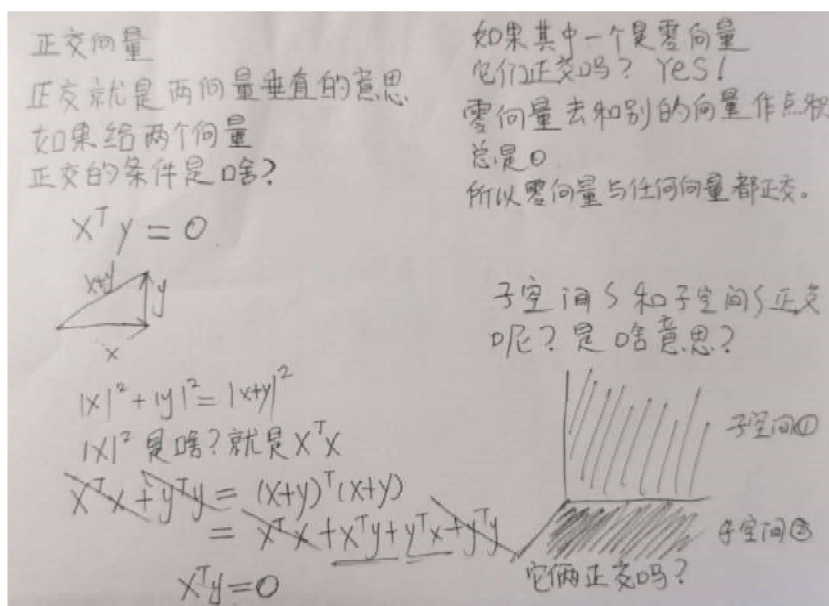 正交向量
正交就是两向量垂直的意思
如果给两个向量
正交的条件是啥?
xᵀy=0
x+y
y
x
|x|²+|y|²=|x+y|²
|x|²是啥?就是xᵀx
xᵀx+yᵀy=(x+y)ᵀ(x+y)
=xᵀx+xᵀy+yᵀx+yᵀy
xᵀy=0
如果其中一个是零向量
它们正交吗? Yes!
零向量去和别的向量作点积
总是0
所以零向量与任何向量都正交。
子空间S和子空间S正交
呢?是啥意思?
子空间①
子空间②
它俩正交吗?